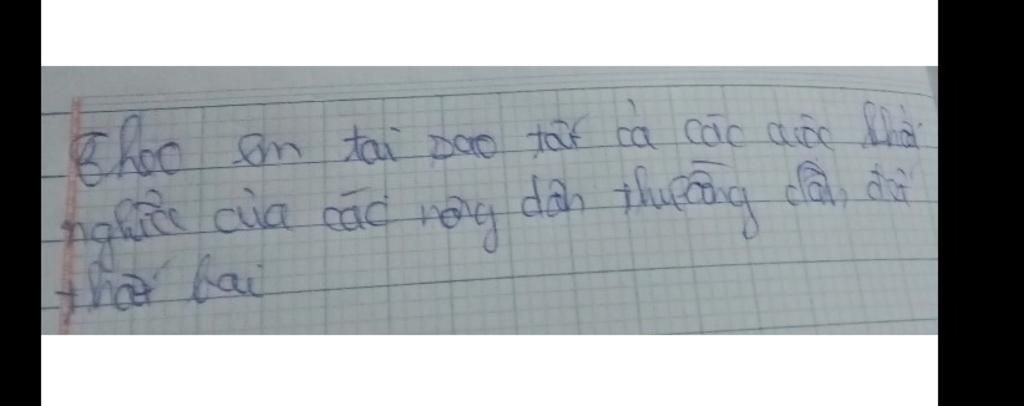 Theo em tại sao tất cả các cuộc khởi
nghĩa của các nông dân thường dẫn đến
thất bại